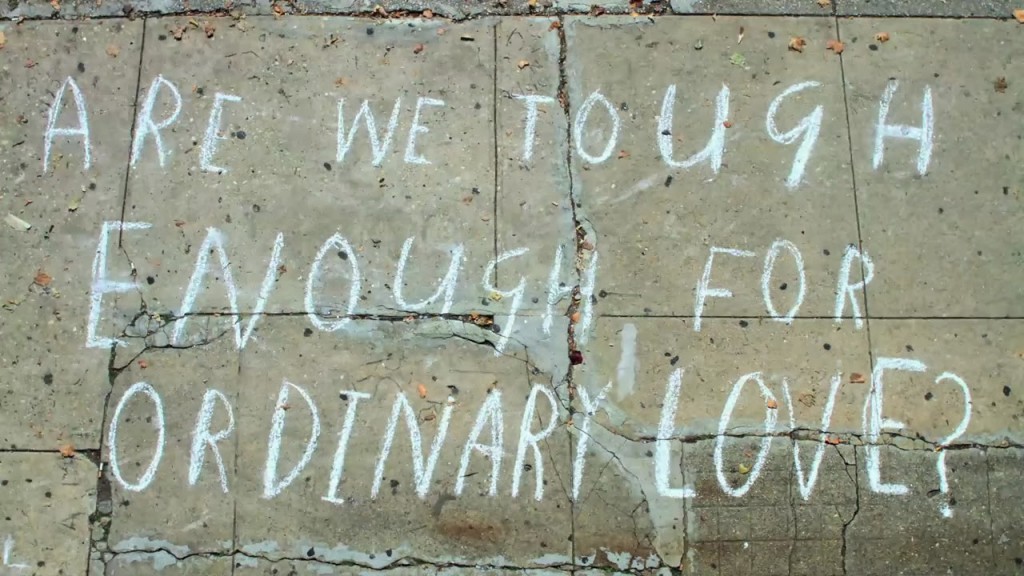 ARE WE TOUGH
ENOUGH FOR
ORDINARY LOVE?
L